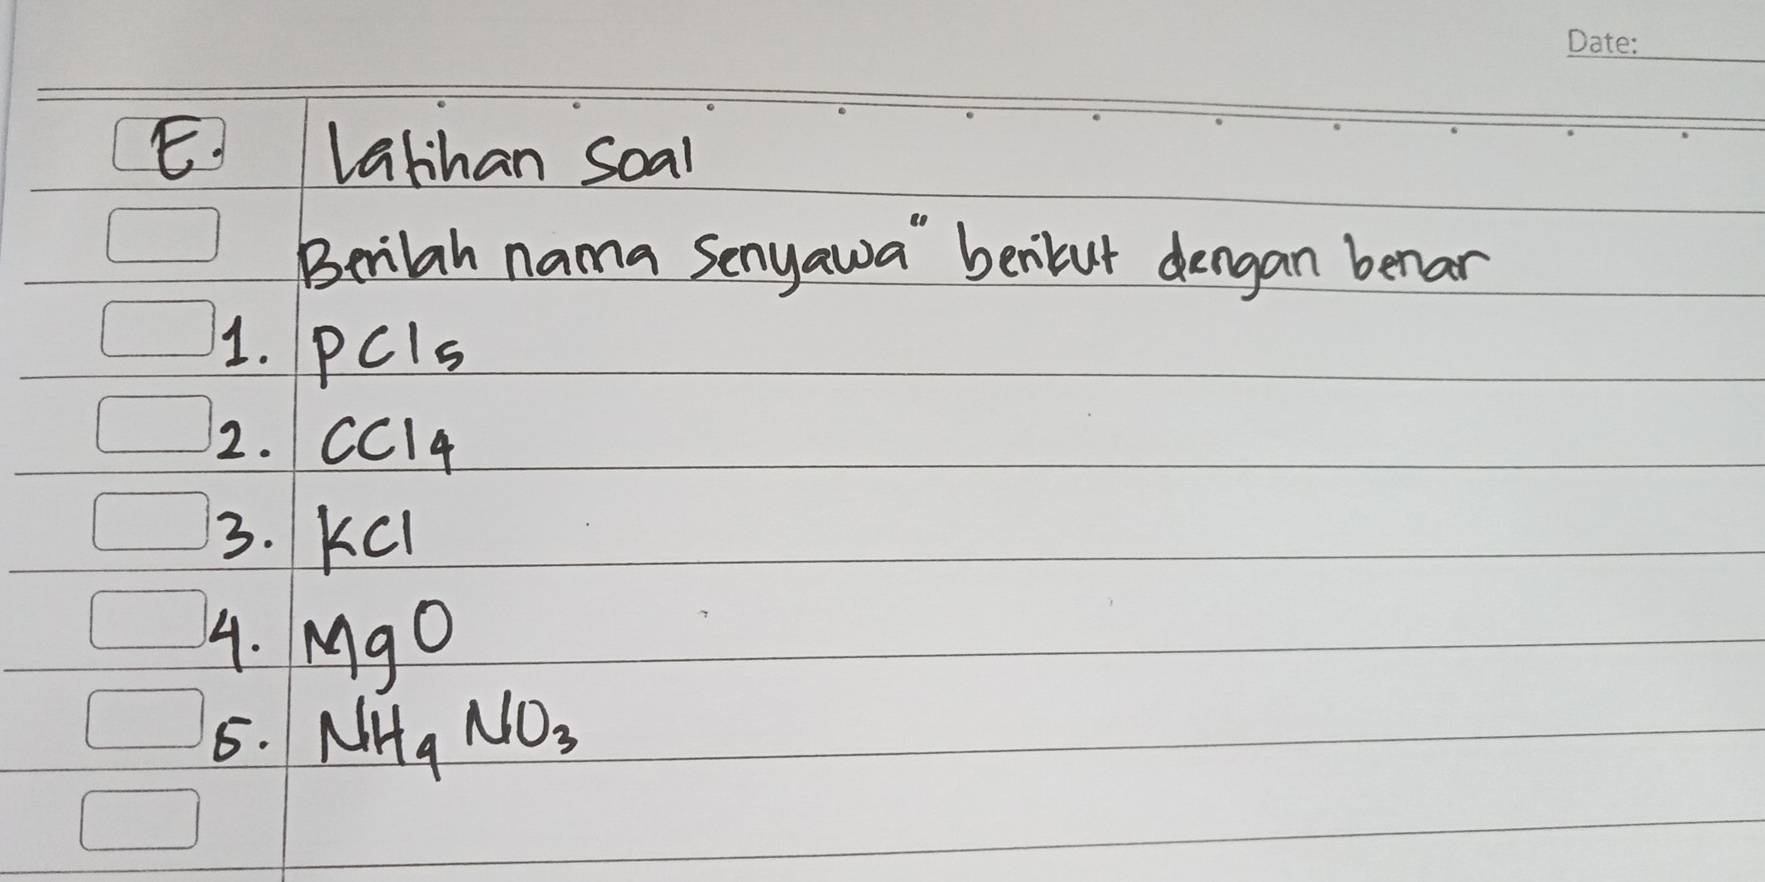 Date:
E. Latihan Soal
Berilah nama senyawa" berikut dengan benar
1. PCl5
2. CCl4
3. KCl
4. MgO
5. NH4 NO3